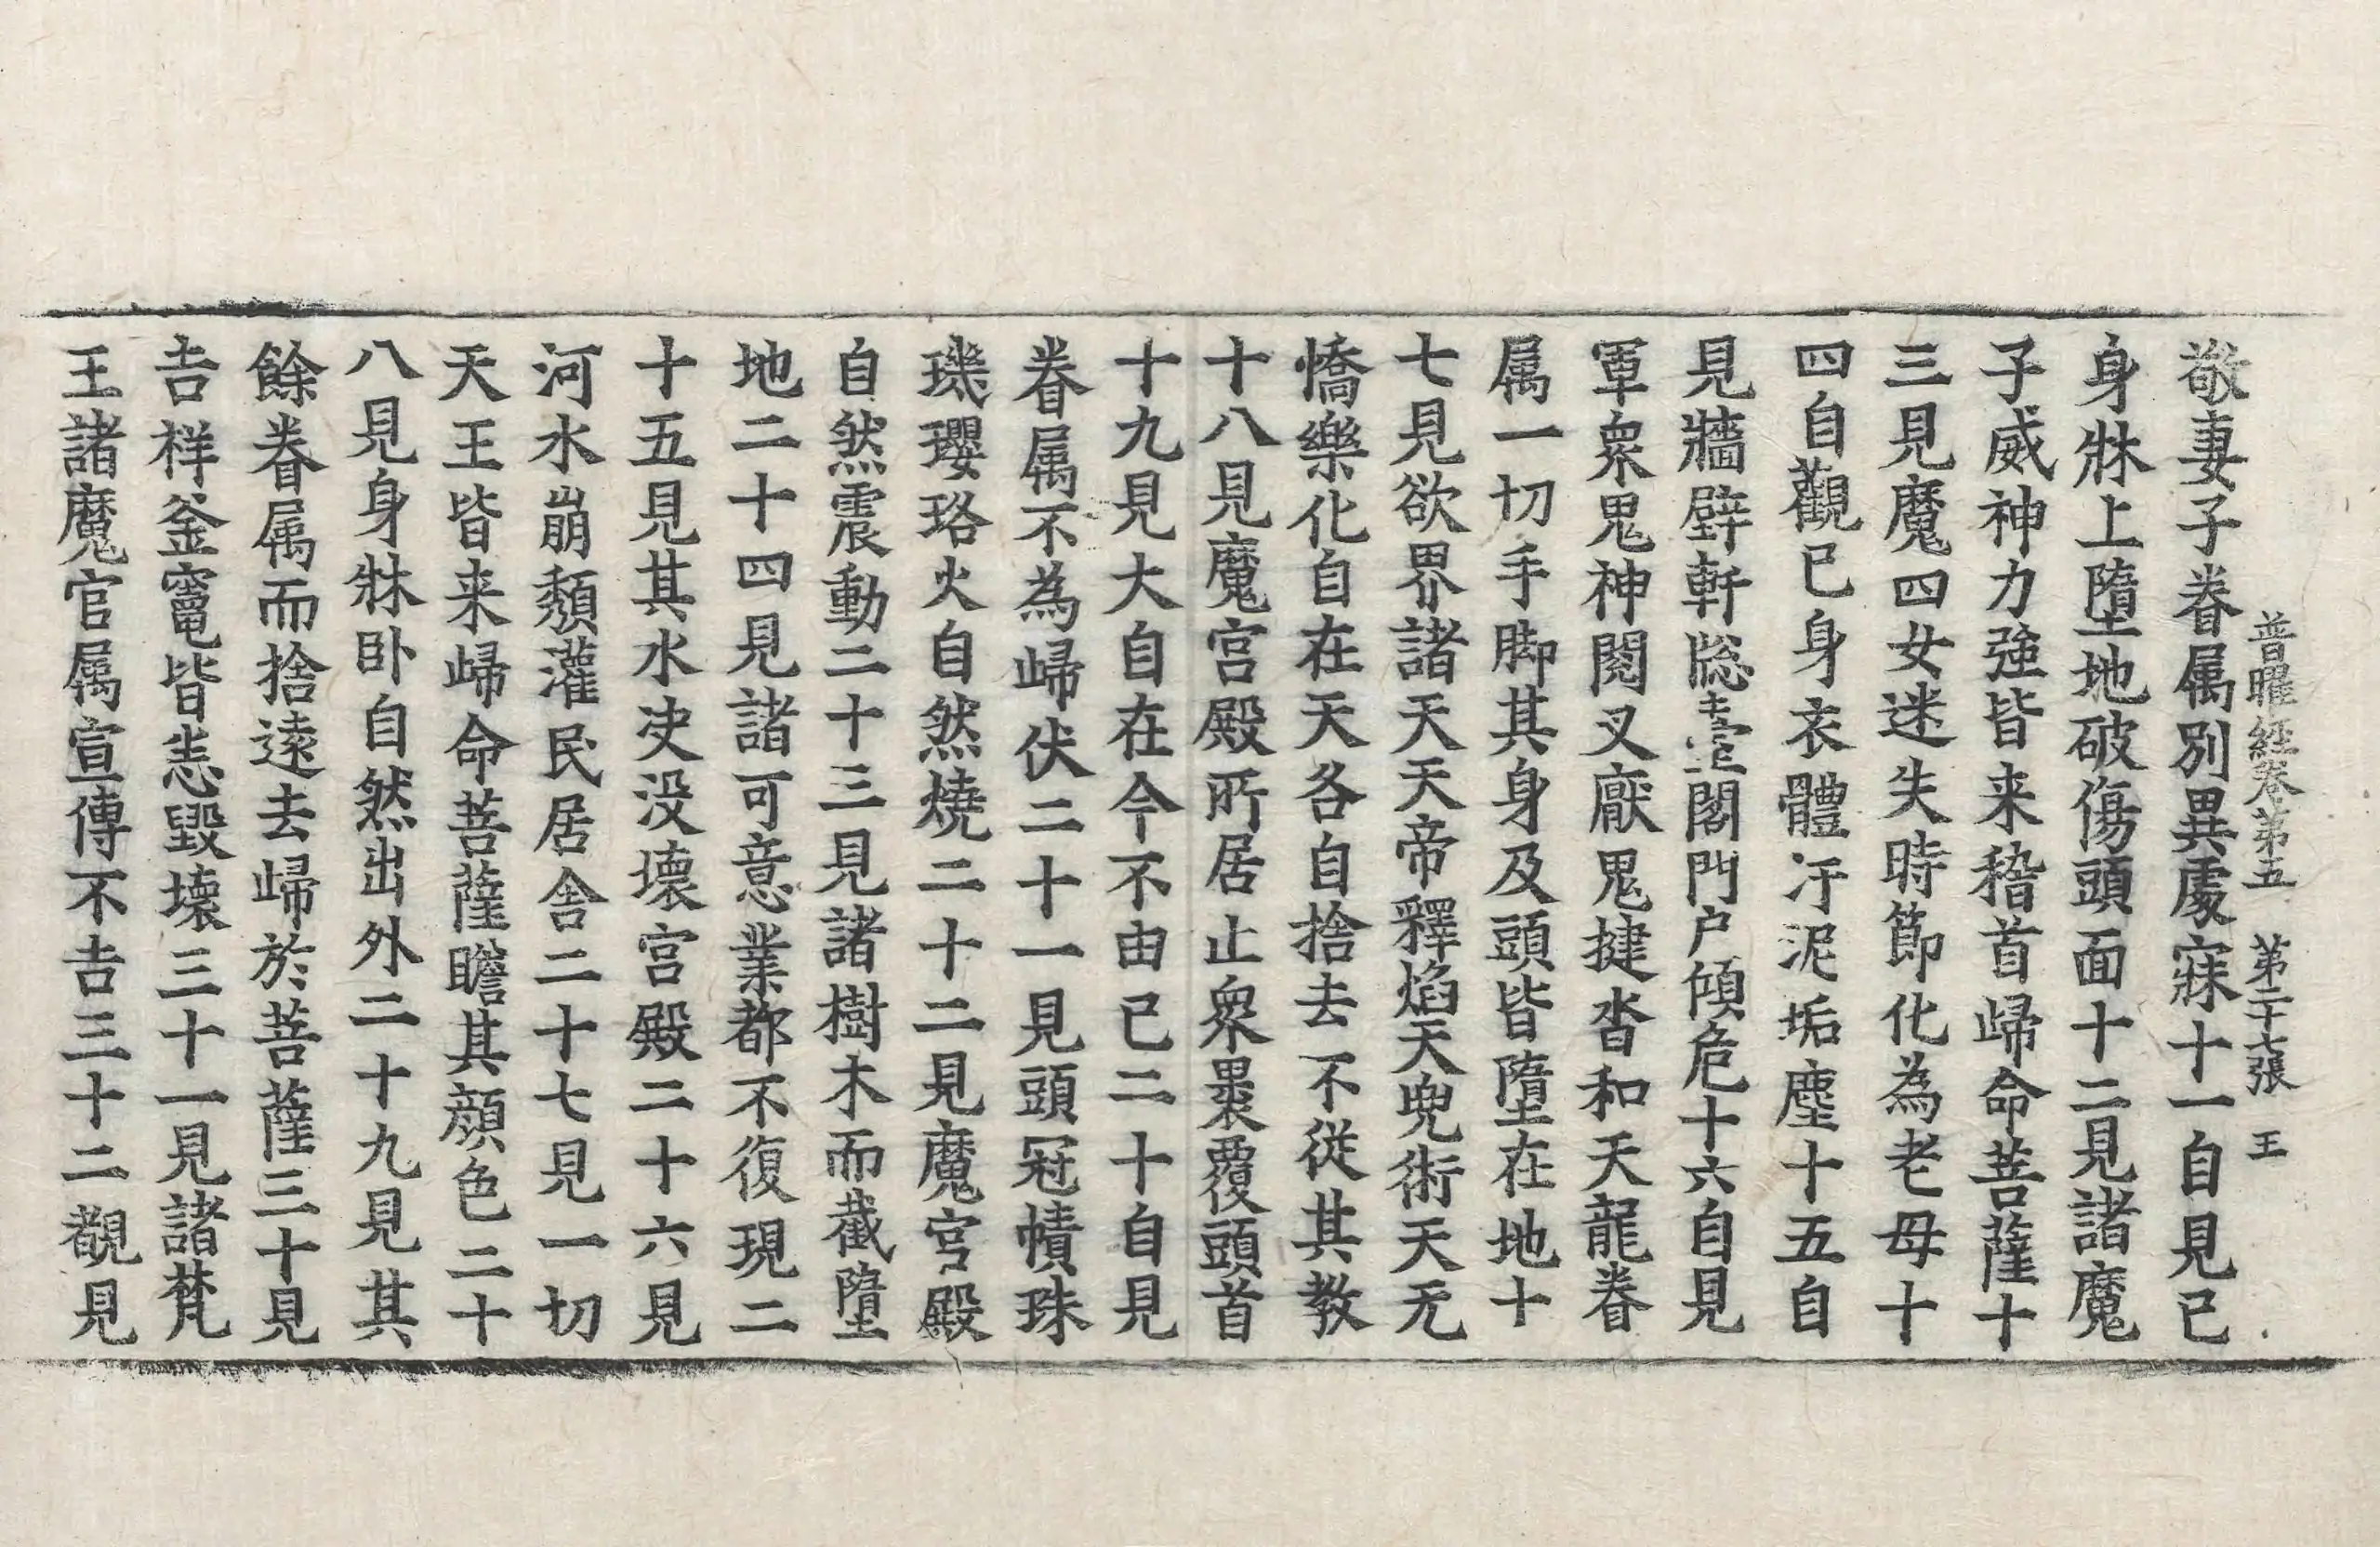 普曜經卷第五 第二十七張 王
敬妻子眷属別異處寐十一自見已
身牀上墮地破傷頭面十二見諸魔
子威神力強皆来稽首歸命菩薩十
三見魔四女迷失時節化為老母十
四自觀已身衣體汙泥垢塵十五自
見牆壁軒牎臺閣門户傾危十六自見
軍衆鬼神閱叉厭鬼揵沓和天龍眷
属一切手脚其身及頭皆墮在地十
七見欲界諸天天帝釋焰天兜術天无
憍樂化自在天各自捨去不從其教
十八見魔宫殿所居止衆裹覆頭首
十九見大自在今不由已二十自見
眷属不為歸伏二十一見頭冠幘珠
璣瓔珞火自然燒二十二見魔宫殿
自然震動二十三見諸樹木而截墮
地二十四見諸可意業都不復現二
十五見其水决没壞宫殿二十六見
河水崩頽灌民居舍二十七見一切
天王皆来歸命菩薩瞻其顔色二十
八見身牀卧自然出外二十九見其
餘眷属而捨遠去歸於菩薩三十見
吉祥釜竈皆悉毀壞三十一見諸梵
王諸魔官属宣傳不吉三十二覩見